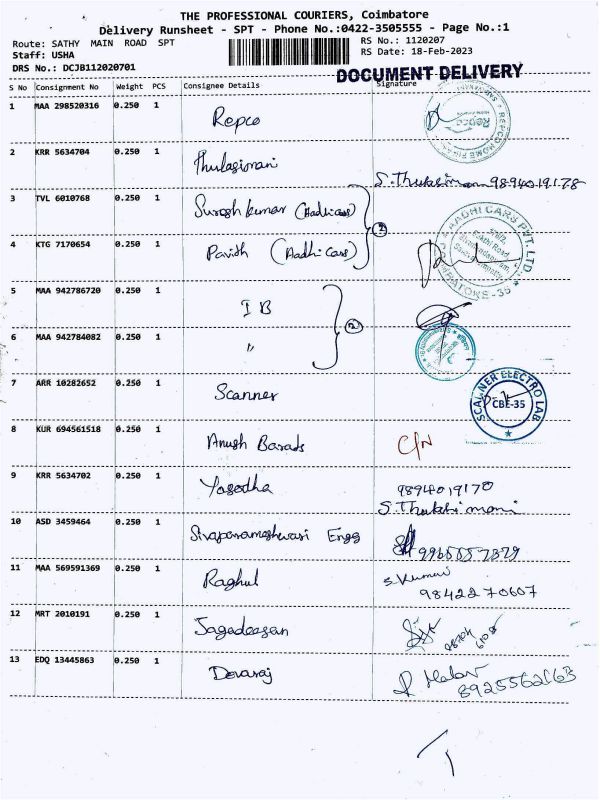 THE PROFESSIONAL COURIERS, Coimbatore
Delivery Runsheet - SPT - Phone No.:0422-3505555 - Page No.:1
Route: SATHY MAIN ROAD SPT
RS No.: 1120207
Staff: USHA
RS Date: 18-Feb-2023
DRS No.: DCJB112020701
DOCUMENT DELIVERY
S No Consignment No Weight PCS Consignee Details Signature
1 MAA 298520316 0.250 1 Repco
2 KRR 5634704 0.250 1 Thulasimani
S. Thulasimani 9894019178
3 TVL 6010768 0.250 1 Suresh kumar (Aadhi cars)
4 KTG 7170654 0.250 1 Pavith (Aadhi cars)
2
AADHI CARS PVT. LTD.
5 MAA 942786720 0.250 1 IB
6 MAA 942784082 0.250 1 "
2
7 ARR 10282652 0.250 1 Scanner
SCANNER ELECTRO LAB
CBE-35
8 KUR 694561518 0.250 1 Anush Barads C/N
9 KRR 5634702 0.250 1 Yasodha 9894019170
S. Thulasimani
10 ASD 3459464 0.250 1 Sivaparameshwari Engg 9965557829
11 MAA 569591369 0.250 1 Raghul S. Kumari
9842270607
12 MRT 2010191 0.250 1 Jagadeesan
13 EDQ 13445863 0.250 1 Devaraj P Malar
8925562163